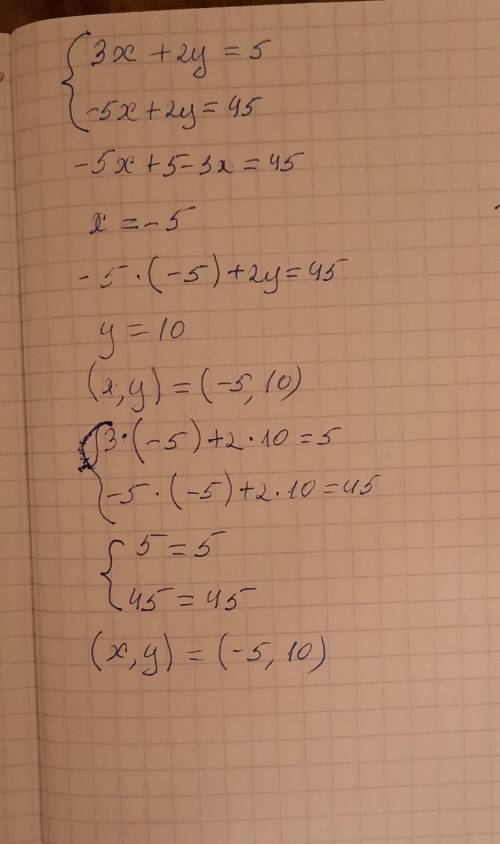 { 3x + 2y = 5
-5x + 2y = 45
-5x + 5 - 3x = 45
x = -5
-5 · (-5) + 2y = 45
y = 10
(x, y) = (-5, 10)
{ 3 · (-5) + 2 · 10 = 5
-5 · (-5) + 2 · 10 = 45
{ 5 = 5
45 = 45
(x, y) = (-5, 10)